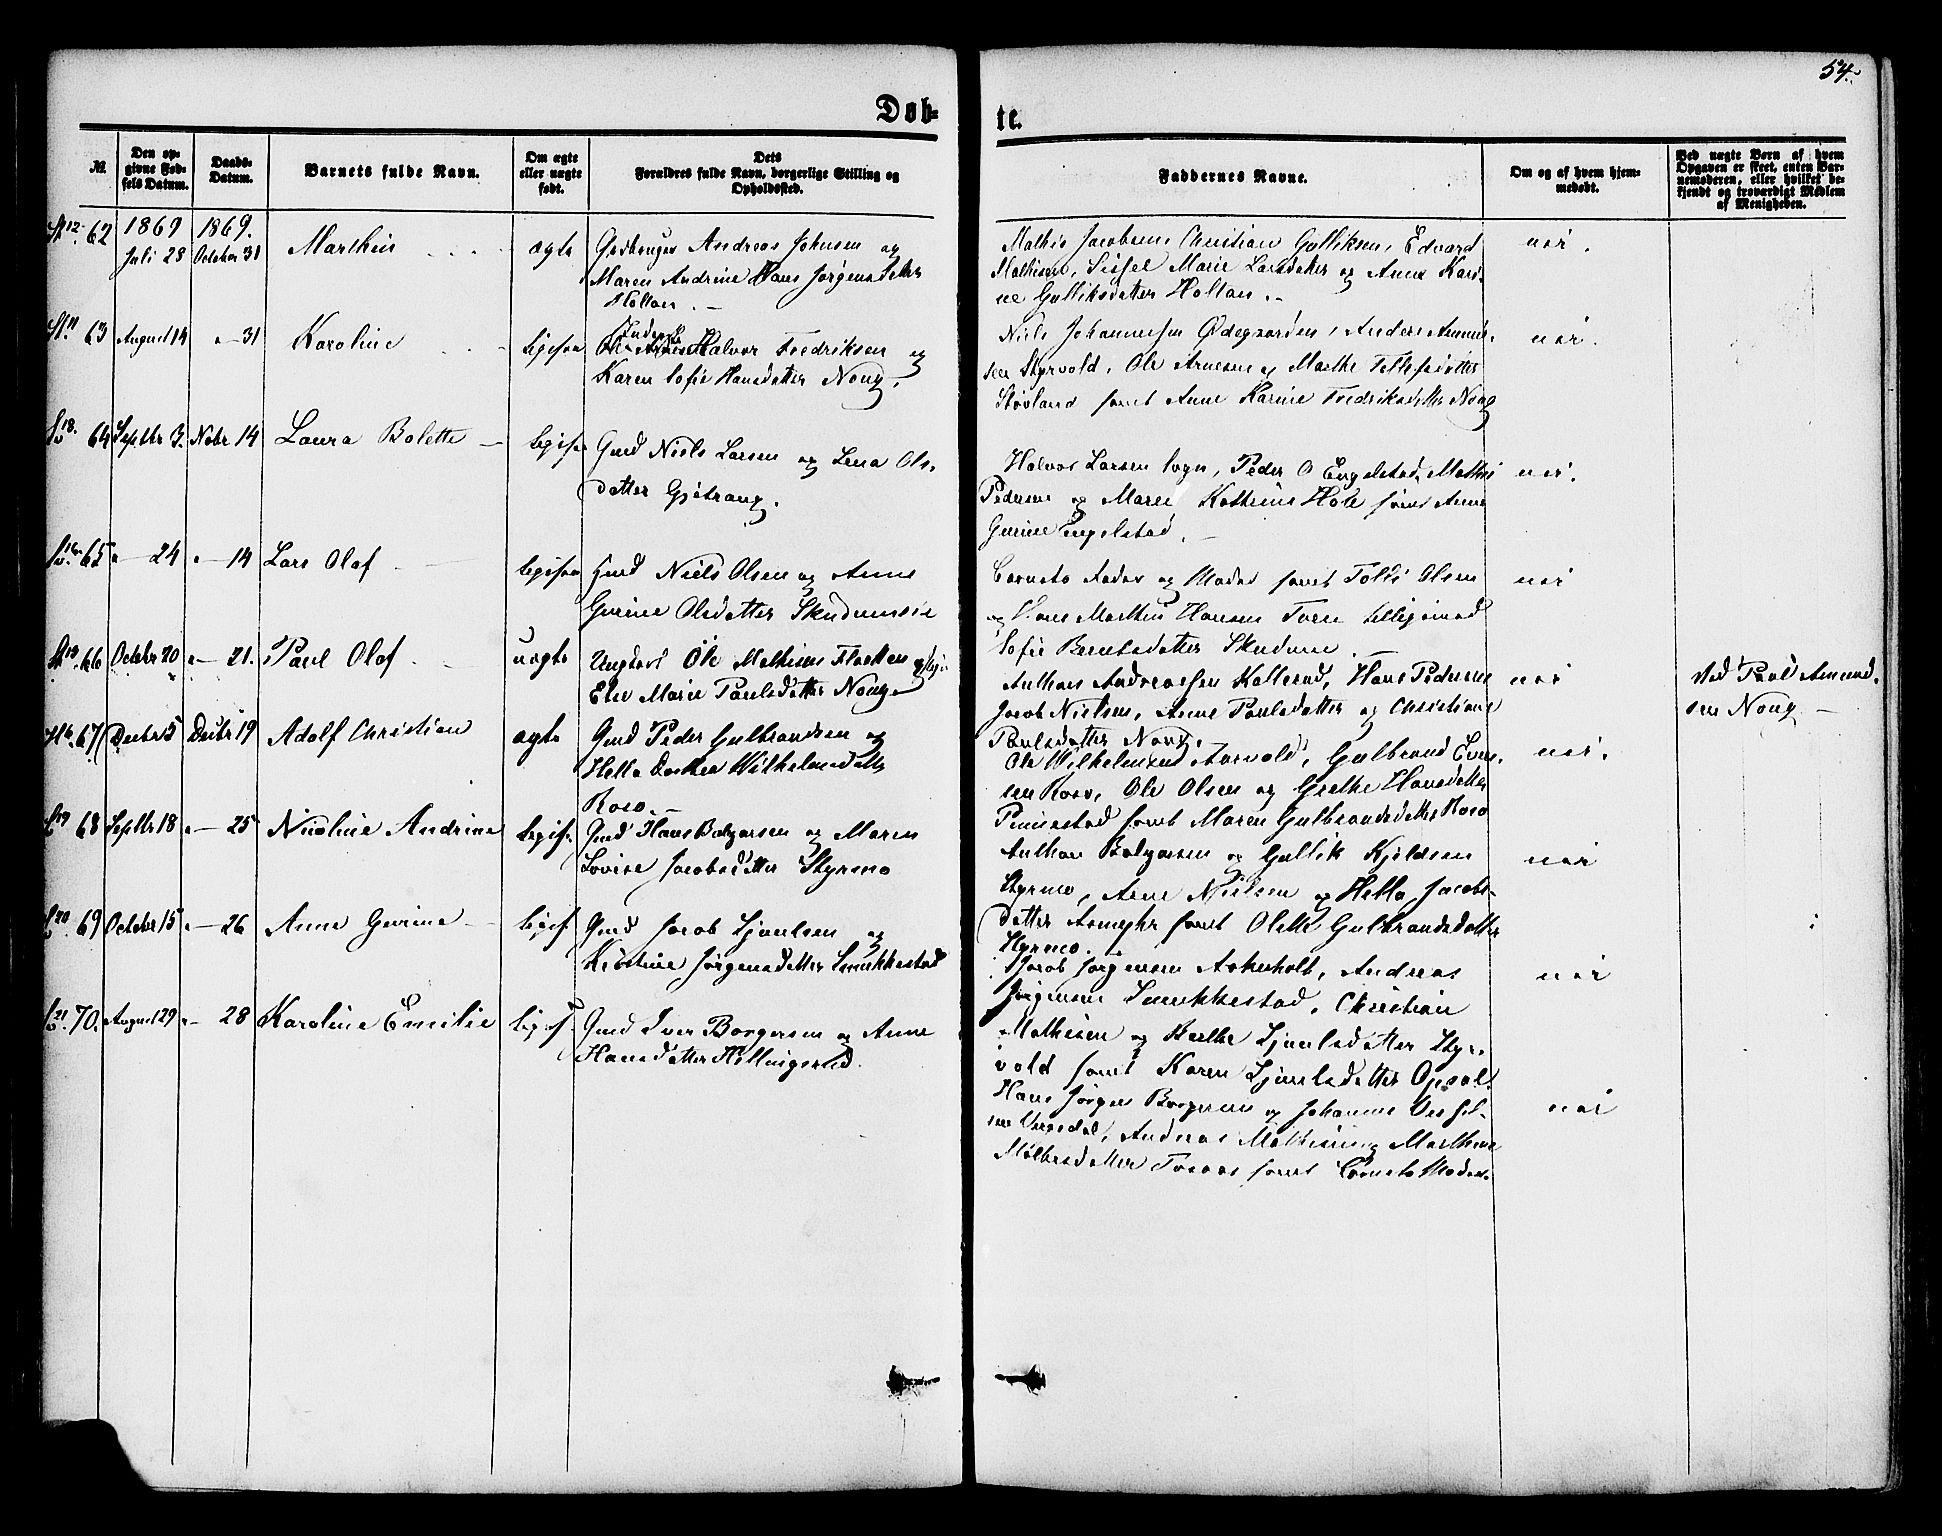 54.
Døb-
te.
№.
Den op-
givne Fød-
sels Datum.
Daabs-
Datum.
Barnets fulde Navn.
Om ægte
eller uægte
født.
Dets
Forældres fulde Navn, borgerlige Stilling og
Opholdssted.
Faddernes Navne.
Om og af hvem hjem-
medøbt.
Ved uægte Børn af hvem
Opgaven er skeet, enten Bar-
nemoderen, eller hvilket be-
kjendt og troværdigt Medlem
af Menigheden.
62
1869
Juli 28
1869.
October 31
Marthin
ægte
Andreas Johnsen og
Maren Andrine Hans Jørgensdatter
Holtan.
Mathis Jacobsen, Christian Gulliksen, Edvard
Mathisen, Sissel Marie Larsdatter og Anne Kari-
ne Gulliksdatter Holtan.
nei.
63
August 14
31
Karoline
Halvor Fredriksen og
Karen Sofie Hansdatter Noug.
Niels Johannesen Ødegaarden, Anders Amund-
sen Styrvold, Ole Arnesen og Marthe Tellefsdatter
Støvland samt Anne Karine Fredriksdatter Noug
nei.
64
Septbr 3.
Novbr 14
Laura Bolette
Gmd Niels Larsen og Lena Ols-
datter Gjetrang.
Halvor Larsen Sogn, Peder O Engelstad, Mathis
Pedersen og Maren Kathrine Hole samt Anne
Gurine Engelstad.
nei.
65
24
14
Lars Olaf
Gmd Niels Olsen og Anne
Gurine Olsdatter
Barnets Fader og Moder samt Olsen
og Hans Marthin Hansen tilligemed
Sofie Berntsdatter
nei
66
October 20
21.
Paul Olaf
uægte
Ungkarl Ole Mathisen Flaatten og
Else Marie Paulsdatter Noug
Anthon Andreassen Kallerød, Hans Pedersen
Jacob Nielsen, Anne Paulsdatter og Christiane
Paulsdatter Noug.
nei
Ved Paul Amund-
sen Noug
67
Decbr 5
Decbr 19
Adolf Christian
ægte
Gmd Peder Gulbrandsen og
Helle Dorthea Wilhelmsdatter
Roso
Ole Wilhelmsen Aarvold, Gulbrand Even-
sen Roso, Ole Olsen og Grethe Hansdatter
samt Maren Gulbrandsdatter Roso
nei.
68
Septbr 18
25
Nicoline Andrine
Gmd Hans Balzersen og Maren
Lovise Jacobsdatter Styrmo
Anthon Balzersen og Gullik Kjeldsen
Styrmo, Arne Nielsen og Helle Jacobs-
datter samt Olette Gulbrandsdatter
Styrmo.
nei
69
October 15
26
Anne Gurine
Gmd Jacob Ljønlsen og
Kirstine Jørgensdatter Smukkestad
Jacob Jørgensen Askeholt, Andreas
Jørgensen Smukkestad, Christian
Mathisen og Grethe Ljønlsdatter Styr-
vold samt Karen Ljønlsdatter Opsal.
nei
70.
August 29
28
Karoline Emilie
Gmd Iver Borgersen og Anne
Hansdatter
Hans Jørgen Borgersen og
Andreas Mathisen og Marthine
samt Barnets Moder.
nei